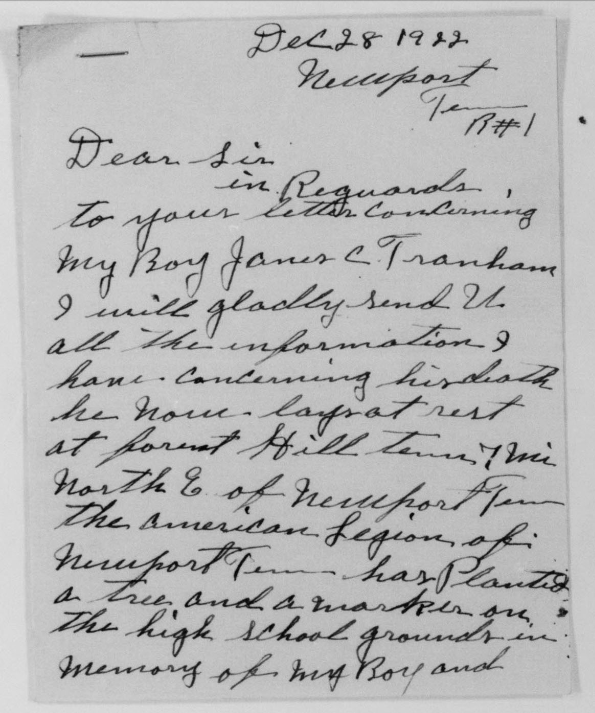 Dec 28 1922
Newport
Tenn
R#1
Dear Sir
in Reguards
to your letter concerning
My Boy James C Tranham
I will gladly send U
all the information I
have concerning his death
he now lays at rest
at forest Hill tenn 7 Mi
North E of Newport Tenn
the american Legion of
Newport Tenn has Planted
a tree and a marker on
the high school grounds in
memory of my Boy and